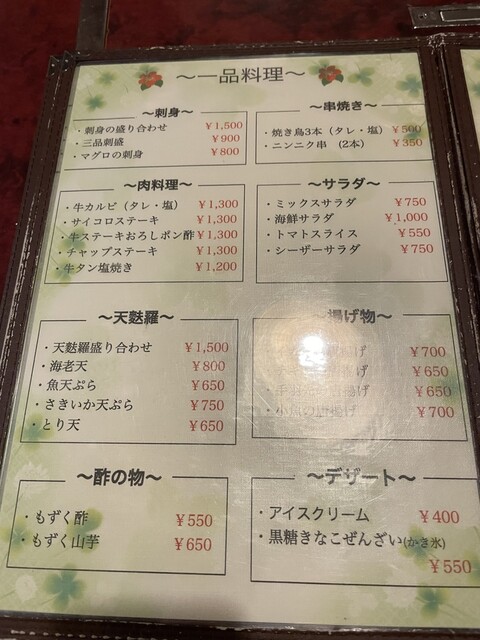 ～一品料理～
～刺身～
・刺身の盛り合わせ ￥1,500
・三品刺盛 ￥900
・マグロの刺身 ￥800
～串焼き～
・焼き鳥3本（タレ・塩） ￥500
・ニンニク串 (2本) ￥350
～肉料理～
・牛カルビ（タレ・塩） ￥1,300
・サイコロステーキ ￥1,300
・牛ステーキおろしポン酢 ￥1,300
・チャップステーキ ￥1,300
・牛タン塩焼き ￥1,200
～サラダ～
・ミックスサラダ ￥750
・海鮮サラダ ￥1,000
・トマトスライス ￥550
・シーザーサラダ ￥750
～天麩羅～
・天麩羅盛り合わせ ￥1,500
・海老天 ￥800
・魚天ぷら ￥650
・さきいか天ぷら ￥750
・とり天 ￥650
～揚げ物～
揚げ ￥700
￥650
揚げ ￥650
唐揚げ ￥700
～酢の物～
・もずく酢 ￥550
・もずく山芋 ￥650
～デザート～
・アイスクリーム ￥400
・黒糖きなこぜんざい(かき氷)
￥550